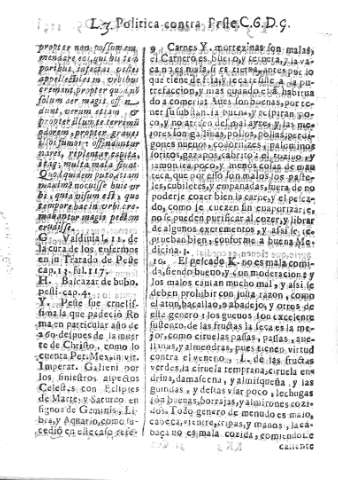 L.3. Politica contra Peste. C.6. D.9.
propter non possum em
mendare ec, qui bus te
poribus, infectas vestes
appellestibus in vrbibus
cremant, propter quam
solum aer magis off
dunt, verum etiam
propter illum te terremu
odorem, propter graues
illos fumos offunduntur
nares, repletur capita,
&
Qualquidem puto, etiam
maxime nocuisse huic vr
bi, quia visum est, que
sempore hac in vrbe cre
mabantur magis pestem
crudisse.
G. Valdiuia l. 11. de
la cura de los enfermos
en in Tratado de Peste
cap. 13. fol. 117.
H. Balcazar de bubo.
pesti. cap. 4.
Y. Peste fue cruelissi
ma la que padeciò Ro
ma en particular año de
a 60. despues de la muer
te de Christo, como lo
cuenta Per. Mex. in vit.
Imperat. Galieni por
los siniestros aspectos
Celest. s con Eclipses
de Marte, y Saturno en
signos de Geminis, Li
bra, y Aquario, como su
cediò en este caso refe-
9 Carnes Y. mortezinas son malas,
el Carnero es bueno, y ternera, y la va
ca no es mala, si es tierna, antes por lo
que tiene de fria, y seca resiste a la pu
trefaccion, y mas quando està habitua
do a comerla. Aues son buenas, por te
ner su habitacion, y respirar po-
co, y no dentro del mal ayre, y las me
jores son gallinas, pollos, pollas, perdi
gones nueuos, codornizes, palominos
toricos, gazapos, cabrito, el tozino, y
jamon sea poco, y menos colas de man
teca, que por esso son malos los paste-
les, cubiletes, y empanadas, fuera de no
poder se cozer bien la carne, y el pesca-
do, como se cuezen sin euaporizar, es
no se pueden purificar al cozer, y librar
de algunos excrementos, y assi se re
prueban bien, conforme a buena Me
dicina.
10. El pescado K. no es mala comi-
da, siendo bueno, y con moderacion; y
los malos causan mucho mal, y assi se
deben prohibir con justa razon, como
el atun, bacallao, abadejo, y otros de
este genero; los gueuos son excelente
sustento, de las frutas la seca es la me-
jor, como ciruelas passas, passas, auc
llanas, y almendras, pues tienen virtud
contra el veneno. L. de las frutas
verdes, la ciruela temprana, ciruela en
drina, damascena, y almisqueña, y las
guindas, y destas vsar poco, lechugas
son buenas, borrajas, y almirones, cozi-
dos. Todo genero de menudo es malo,
cabeça, vientre, tripas, y manos, la ca-
baça no es mala cozida, comiendola
caliente